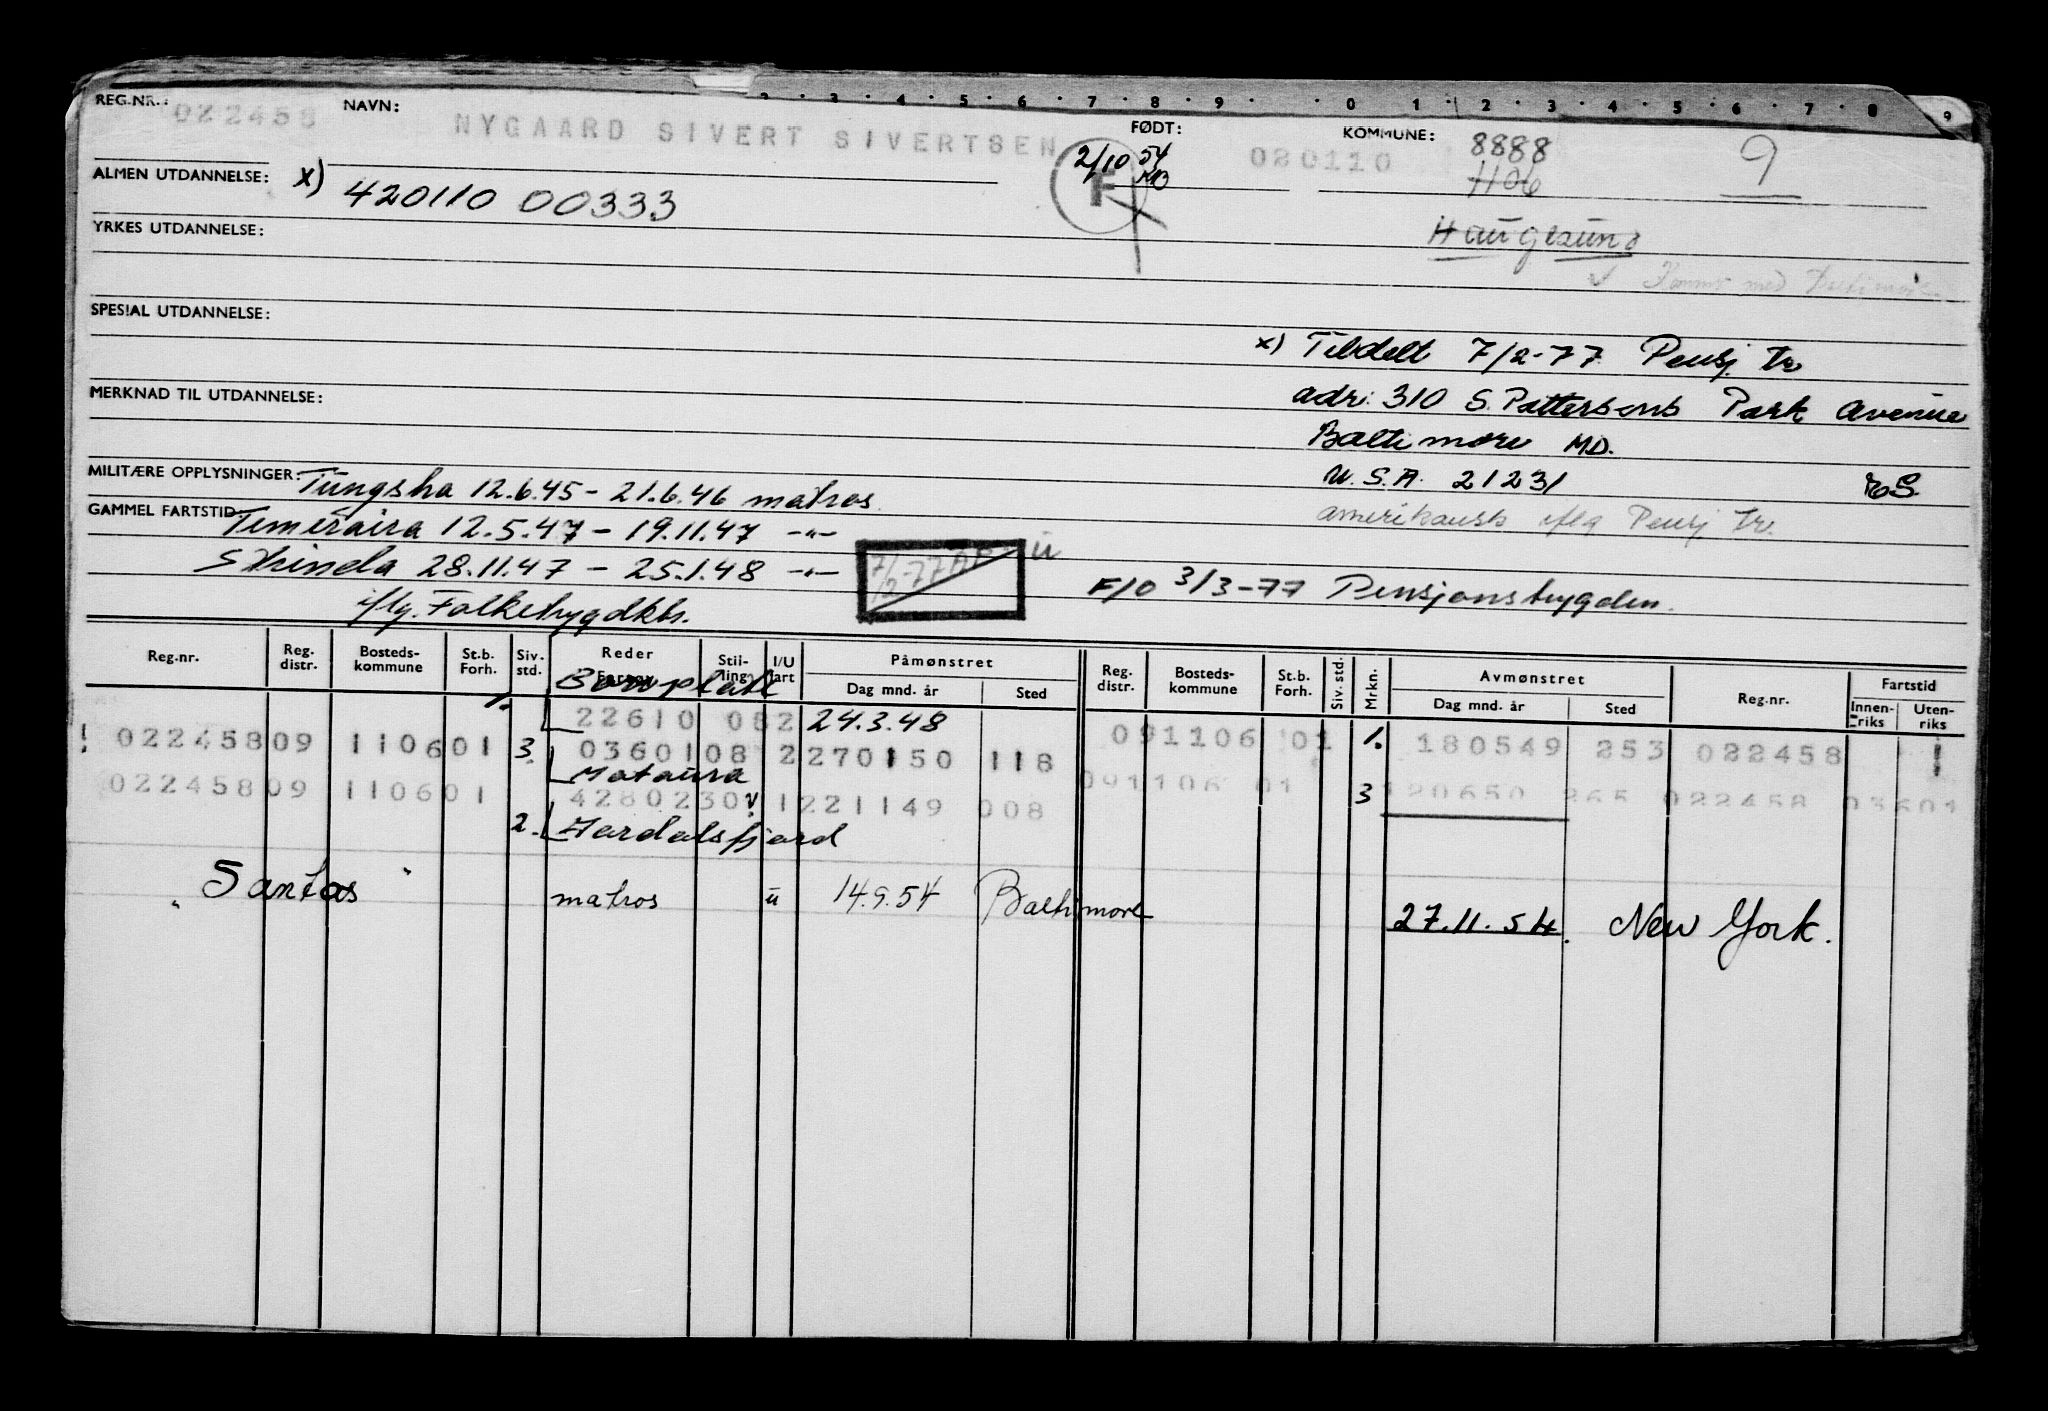 2 · 3 · 4 · 5 · 6 · 7 · 8 · 9 · · 0 1 · 2 · 3 · 4 · 5 · 6 · 7 · 8 9
REG.NR.: 022458 NAVN: NYGAARD SIVERT SIVERTSEN FØDT: 020110 KOMMUNE: 8888
2/10 54 1106 9
F
ALMEN UTDANNELSE: x) 420110 00333
YRKES UTDANNELSE: Haugesund
✓ med Baltimore
SPESIAL UTDANNELSE:
x) Tildelt 7/2-77 Pensj. tr
MERKNAD TIL UTDANNELSE: adr: 310 S. Pattersons Park Avenue
Baltimore MD.
MILITÆRE OPPLYSNINGER: Tungsha 12.6.45 - 21.6.46 matros
U.S.A. 21231
GAMMEL FARTSTID: Temeraira 12.5.47 - 19.11.47 -"-
amerikansk iflg Pensj tr.
Skinda 28.11.47 - 25.1.48 -"- 7/2-77 u
F/O 3/3-77 Pensjonstrygden.
iflg. Folketrygdktr.
Reg.nr. Reg. distr. Bosteds-kommune St.b. Forh. Siv. std. Reder Stil-ling I/U fart Påmønstret Dag mnd. år Sted Reg. distr. Bosteds-kommune St.b. Forh. Siv. std. Mrkn. Avmønstret Dag mnd. år Sted Reg.nr. Fartstid Innen-riks Uten-riks
1. Bonplatl
22610 082 24.3.48
! 022458 09 1106 01 3. 0360108 2 270150 118 091106 01 1. 180549 253 022458 !
Mataura
022458 09 1106 01 4280230 1 221149 008 091106 01 3 120650 265 022458 03601
2. Aardalsfjord
" Santos " matros u 14.9.54 Baltimore 27.11.54. New York.